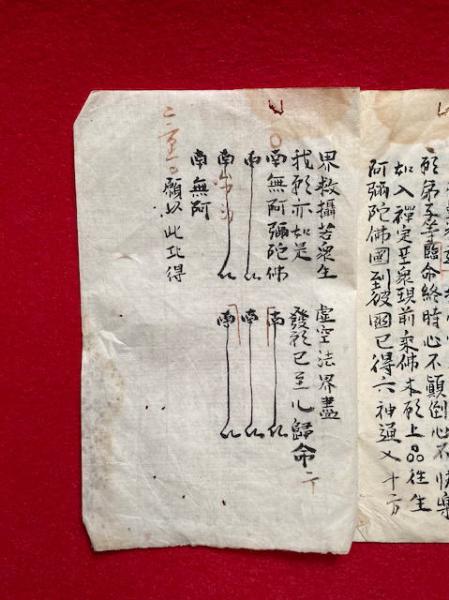 願弟子等臨命終時心不顛倒心不
如入禪定聖衆現前乘佛本願上品徃生
阿彌陀佛國到彼國已得六神通入十方
界救攝苦衆生 虛空法界盡
我願亦如是 發願已至心歸命
南無阿彌陀佛 南 仏
南 仏 南 仏
南 仏 南 仏
南無阿
願以此功得